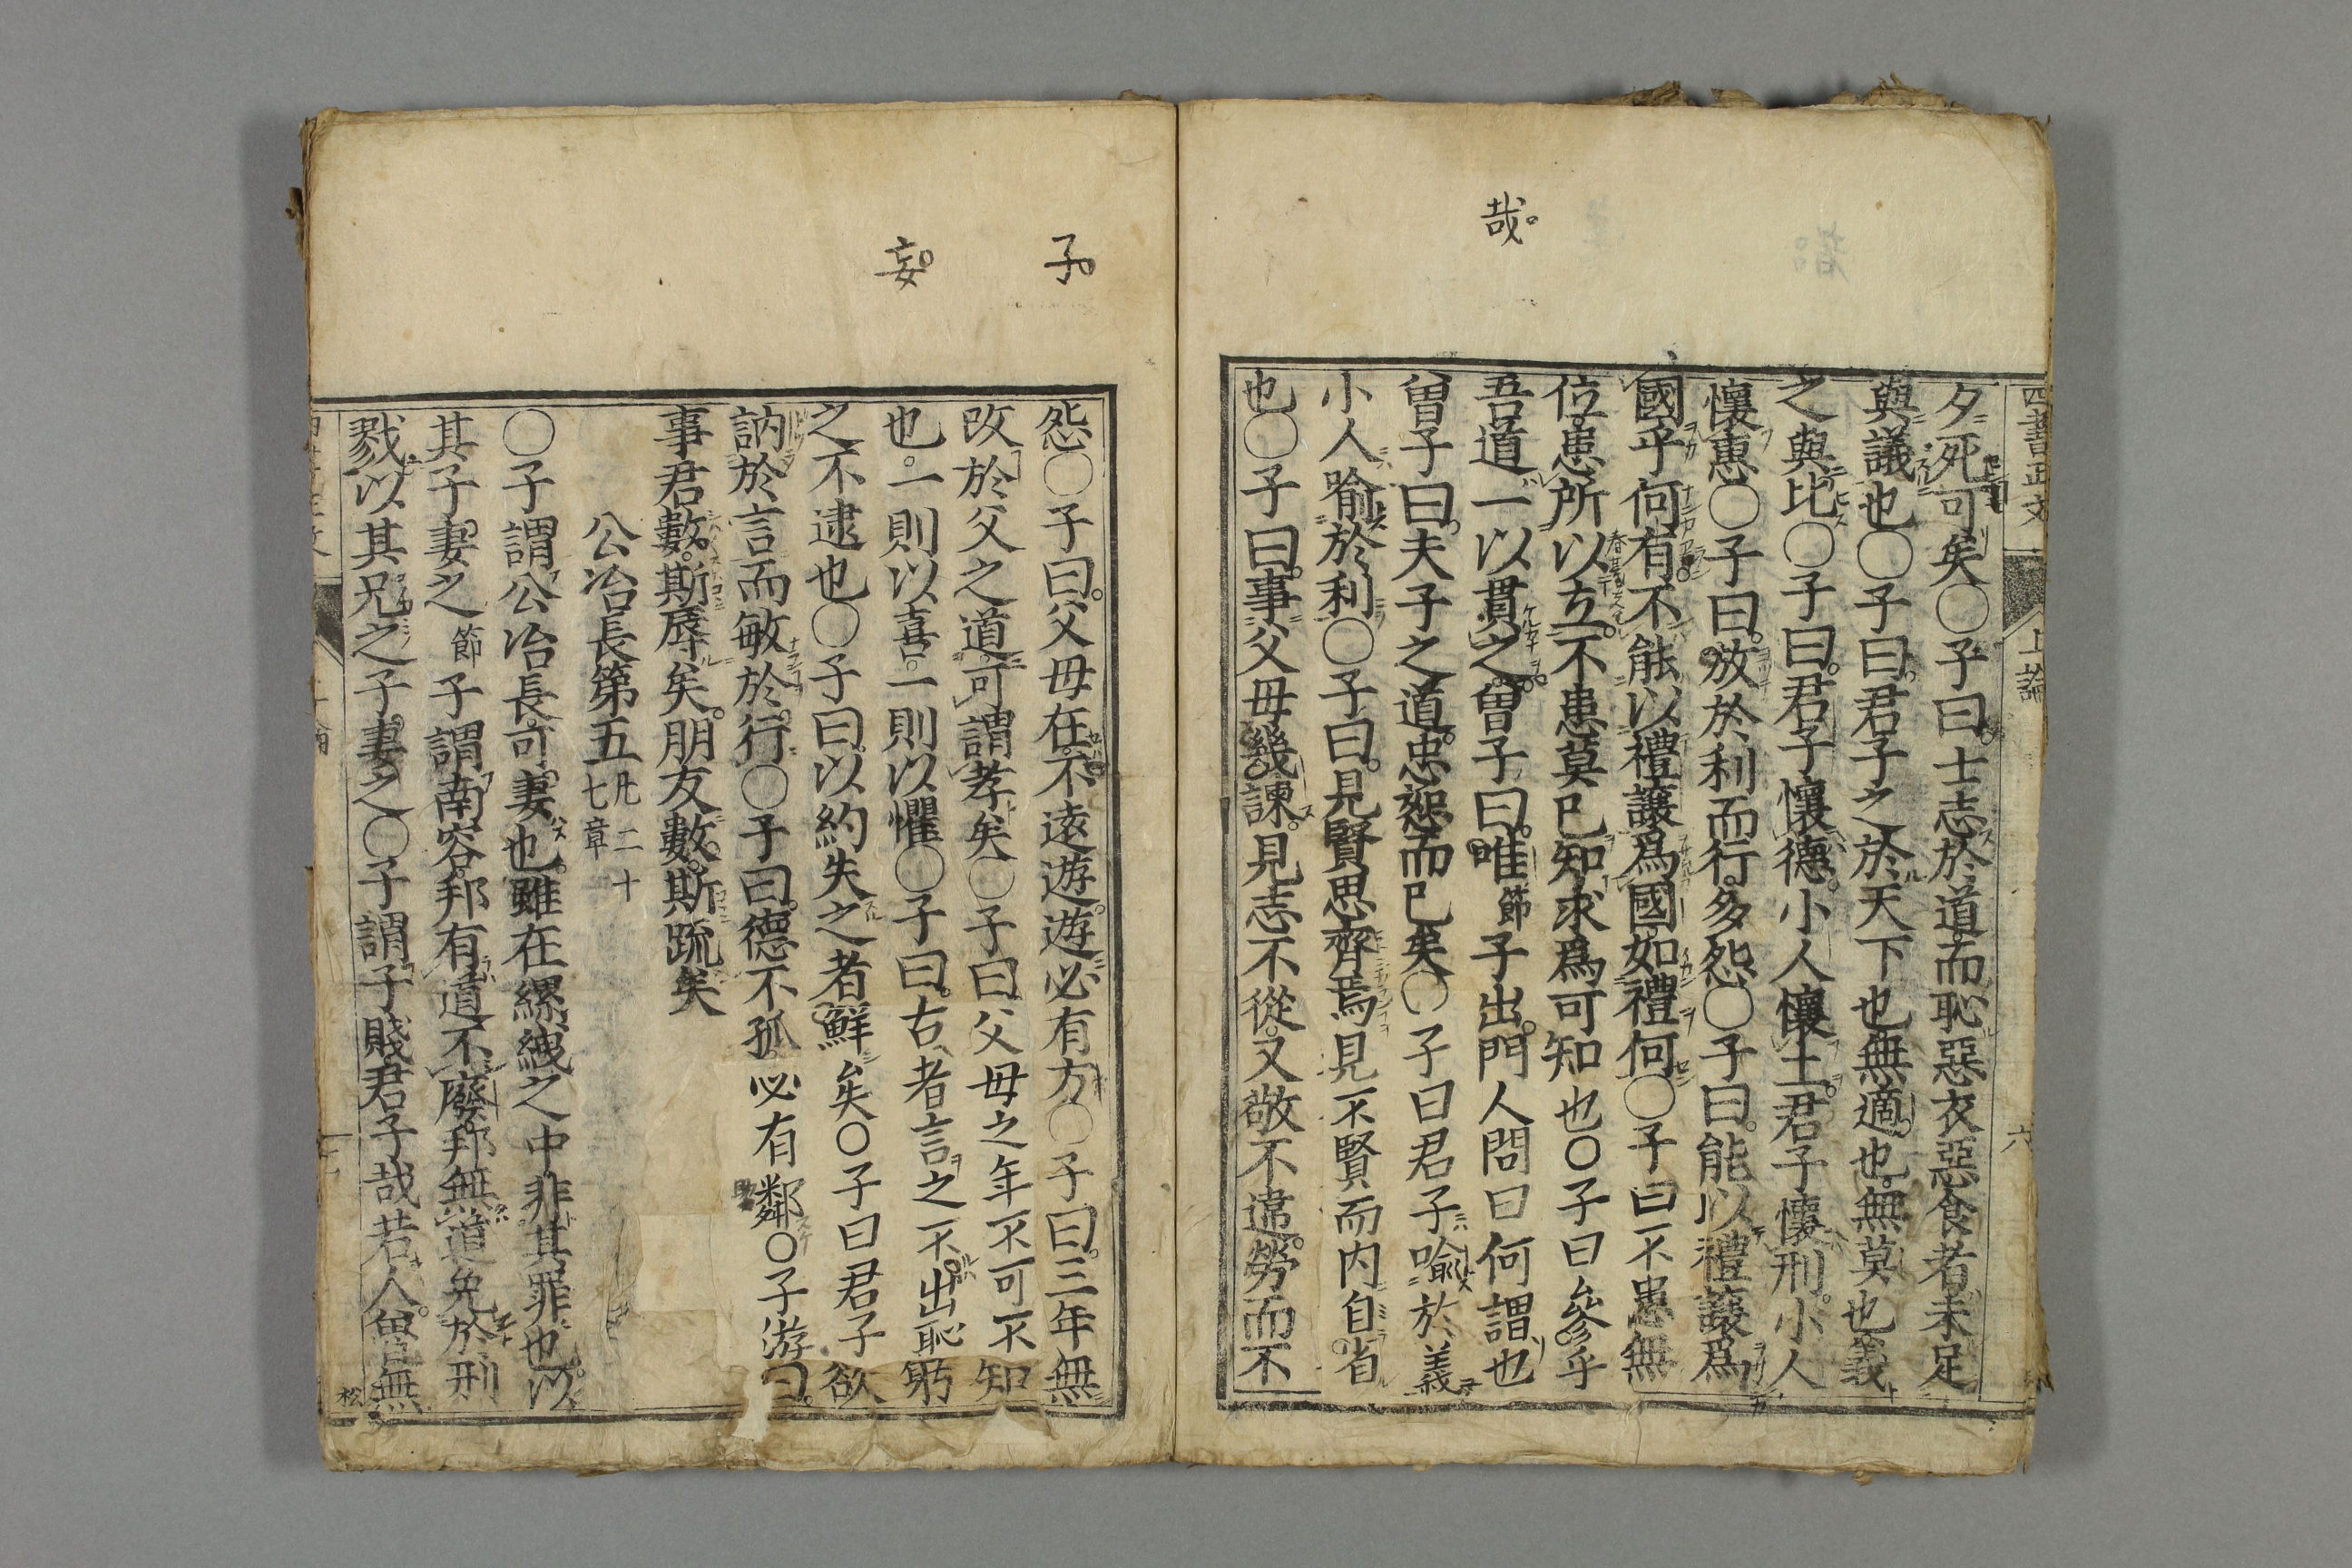 哉
四書正文 上論 六
夕死可矣〇子曰士志於道而恥惡衣惡食者未足
與議也〇子曰君子之於天下也無適也無莫也義
之與比〇子曰君子懷德小人懷土君子懷刑小人
懷惠〇子曰放於利而行多怨〇子曰能以禮讓爲
國乎何有不能以禮讓爲國如禮何〇子曰不患無
位患所以立不患莫已知求爲可知也〇子曰參乎
吾道一以貫之曾子曰唯節子出門人問曰何謂也
曾子曰夫子之道忠恕而已矣〇子曰君子喻於義
小人喻於利〇子曰見賢思齊焉見不賢而内自省
也〇子曰事父母幾諫見志不從又敬不違勞而不
子
妄
怨〇子曰父母在不遠遊遊必有方〇子曰三年無
改於父之道可謂孝矣〇子曰父母之年不可不知
也一則以喜一則以懼〇子曰古者言之不出恥躬
之不逮也〇子曰以約失之者鮮矣〇子曰君子欲
訥於言而敏於行〇子曰德不孤必有鄰〇子游曰
事君數斯辱矣朋友數斯疏矣
公冶長第五凡二十七章
〇子謂公冶長可妻也雖在縲絏之中非其罪也以
其子妻之節子謂南容邦有道不廢邦無道免於刑
戮以其兄之子妻之〇子謂子賤君子哉若人魯無
松